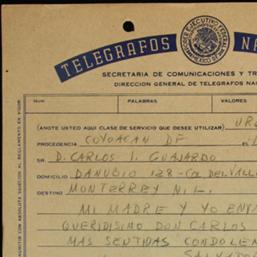 TELEGRAFOS NA
PODER EJECUTIVO FEDERAL
MEXICO
SECRETARIA DE COMUNICACIONES Y TR
DIRECCION GENERAL DE TELEGRAFOS NA
NUM. PALABRAS VALORES
URG
(ANOTE USTED AQUI CLASE DE SERVICIO QUE DESEE UTILIZAR)
PROCEDENCIA COYOACAN DF
SR. D. CARLOS I. GUAJARDO
DOMICILIO DANUBIO 128-COL DEL VALLE
DESTINO MONTERREY N.L.
MI MADRE Y YO ENV
QUERIDISIMO DON CARLOS
MAS SENTIDAS CONDOLEN
SALVADOR